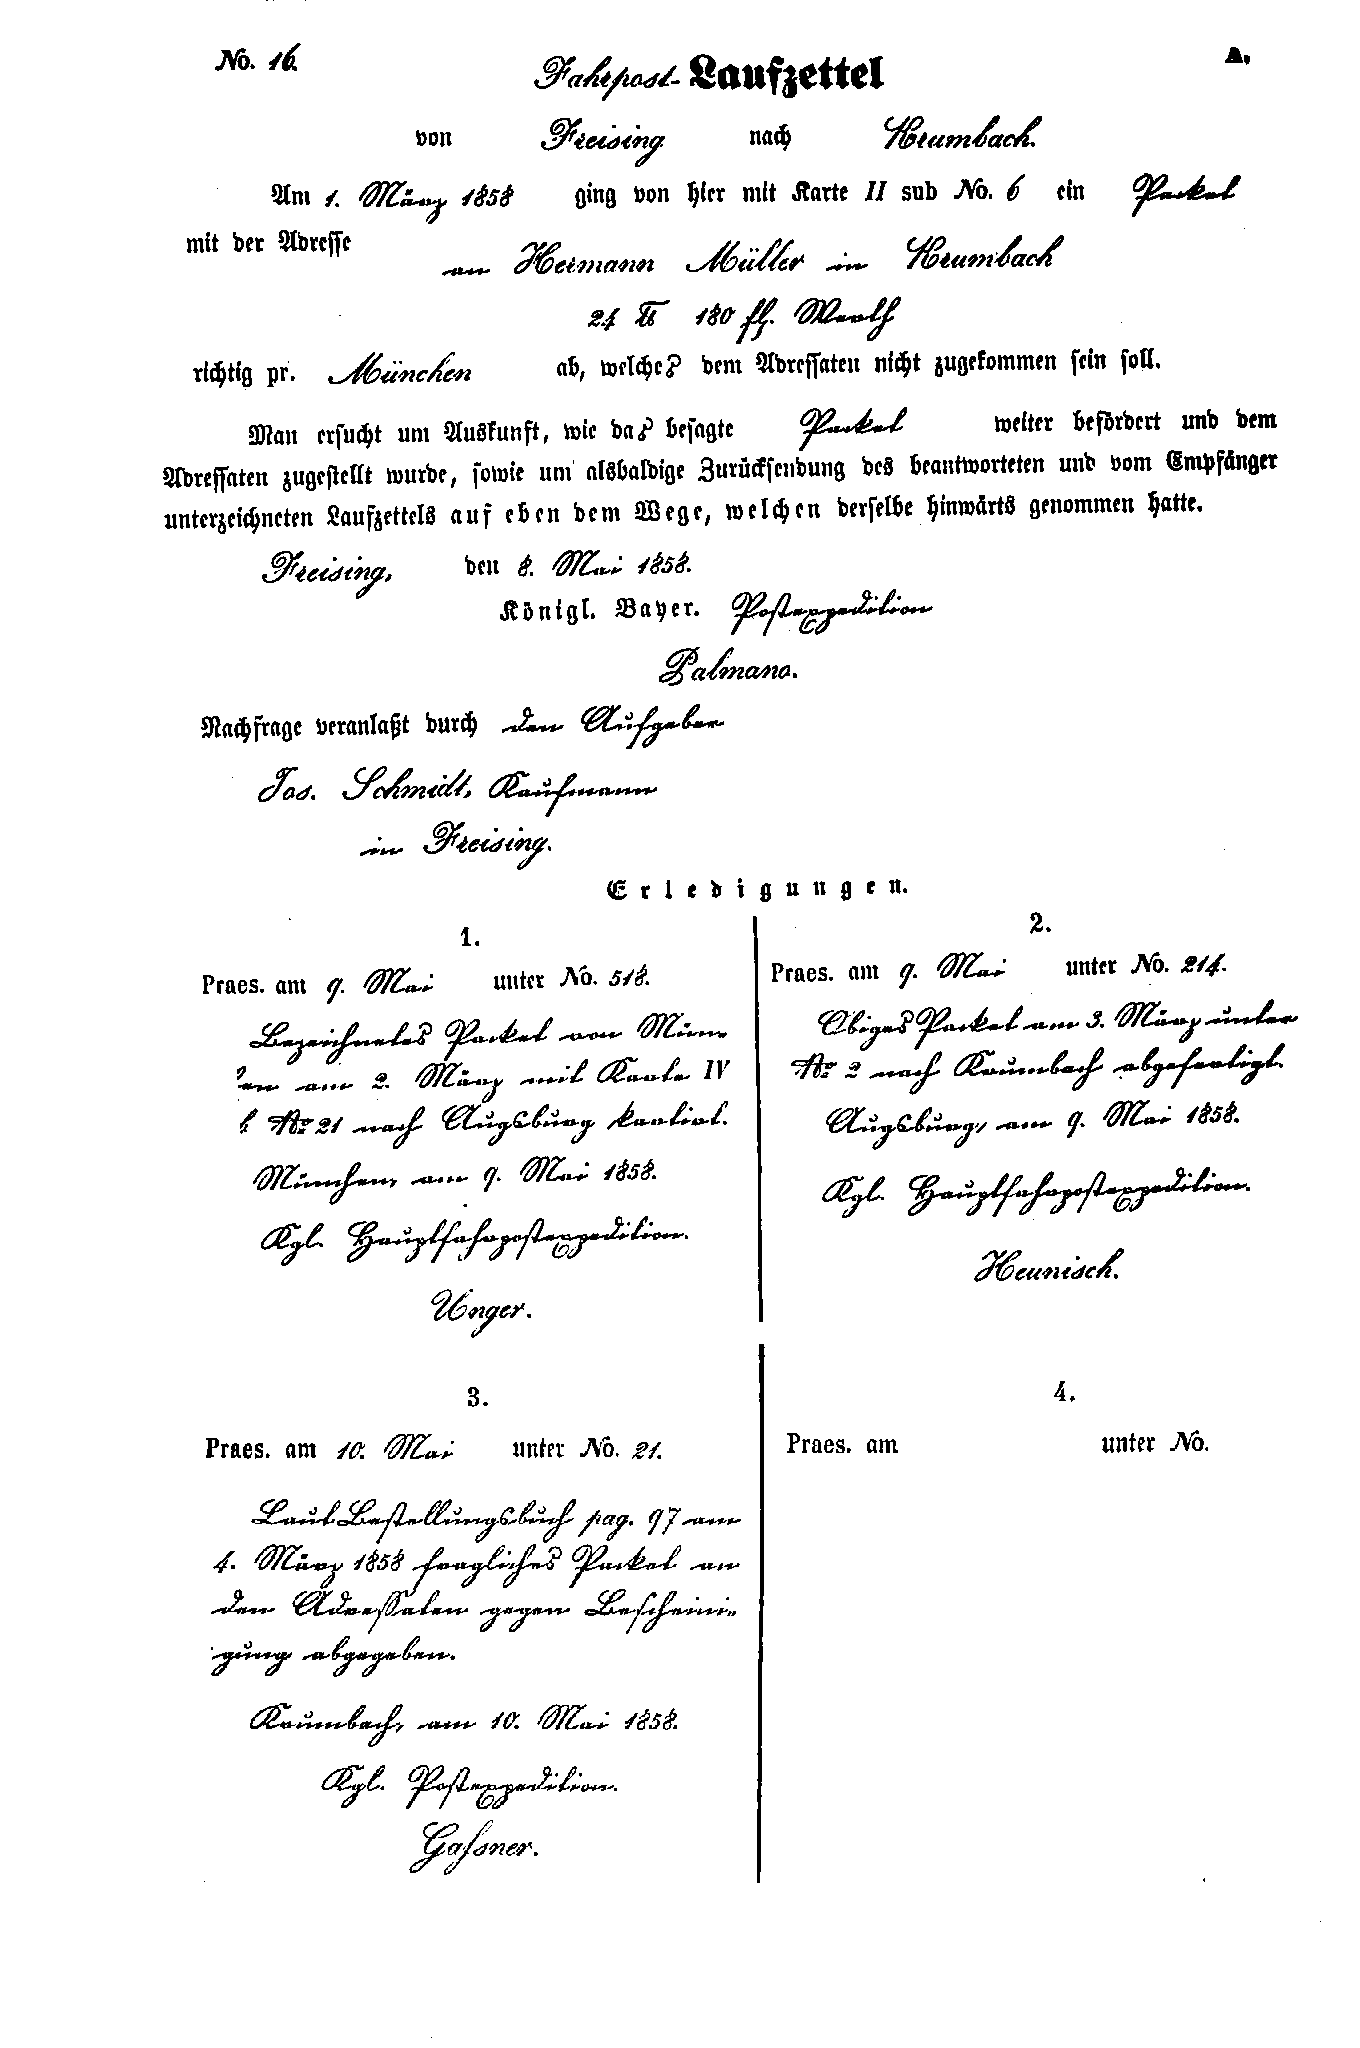 No. 16. Fahrpost-Laufzettel A.
von Freising nach Krumbach.
Am 1. März 1858 ging von hier mit Karte II sub No. 6 ein Packet
mit der Adresse
an Hermann Müller in Krumbach
24 ℔ 180 fl. Werth
richtig pr. München ab, welches dem Adressaten nicht zugekommen sein soll.
Man ersucht um Auskunft, wie das besagte Packet weiter befördert und dem
Adressaten zugestellt wurde, sowie um alsbaldige Zurücksendung des beantworteten und vom Empfänger
unterzeichneten Laufzettels auf eben dem Wege, welchen derselbe hinwärts genommen hatte.
Freising, den 8. Mai 1858.
Königl. Bayer. Postexpedition
Palmano.
Nachfrage veranlaßt durch den Aufgeber
Jos. Schmidt, Kaufmann
in Freising.
Erledigungen.
1.
Praes. am 9. Mai unter No. 518.
Bezeichnetes Packet von Mün-
en am 2. März mit Karte IV
b No 21 nach Augsburg kartirt.
München, am 9. Mai 1858.
Kgl. Hauptfahrpostexpedition.
Unger.
2.
Praes. am 9. Mai unter No. 214.
Obiges Packet am 3. März unter
No 2 nach Krumbach abgefertigt.
Augsburg, am 9. Mai 1858.
Kgl. Hauptfahrpostexpedition.
Heunisch.
3.
Praes. am 10. Mai unter No. 21.
Laut Bestellungsbuch pag. 97 am
4. März 1858 fragliches Packet an
den Adressaten gegen Bescheini-
gung abgegeben.
Krumbach, am 10. Mai 1858.
Kgl. Postexpedition.
Gassner.
4.
Praes. am unter No.